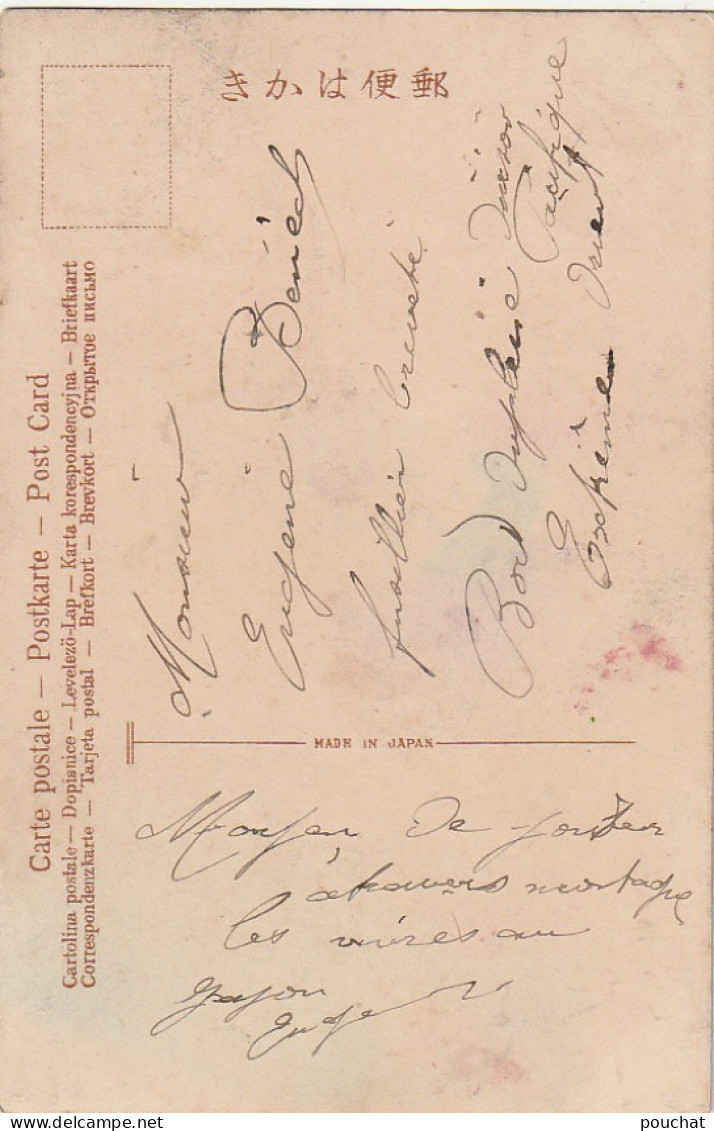 きかは便郵
Carte postale — Postkarte — Post Card
Cartolina postale — Dopisnice — Levelező-Lap — Karta korespondencyjna — Briefkaart
Correspondenzkarte — Tarjeta postal — Brefkort — Brevkort — Открытое письмо
Monsieur
Eugène Bénéch
fusillier breveté
Bord Dupleix Division
Pacifique
Extrême Orient
MADE IN JAPAN
Moyen De
à travers
les au
Japon
pouchat